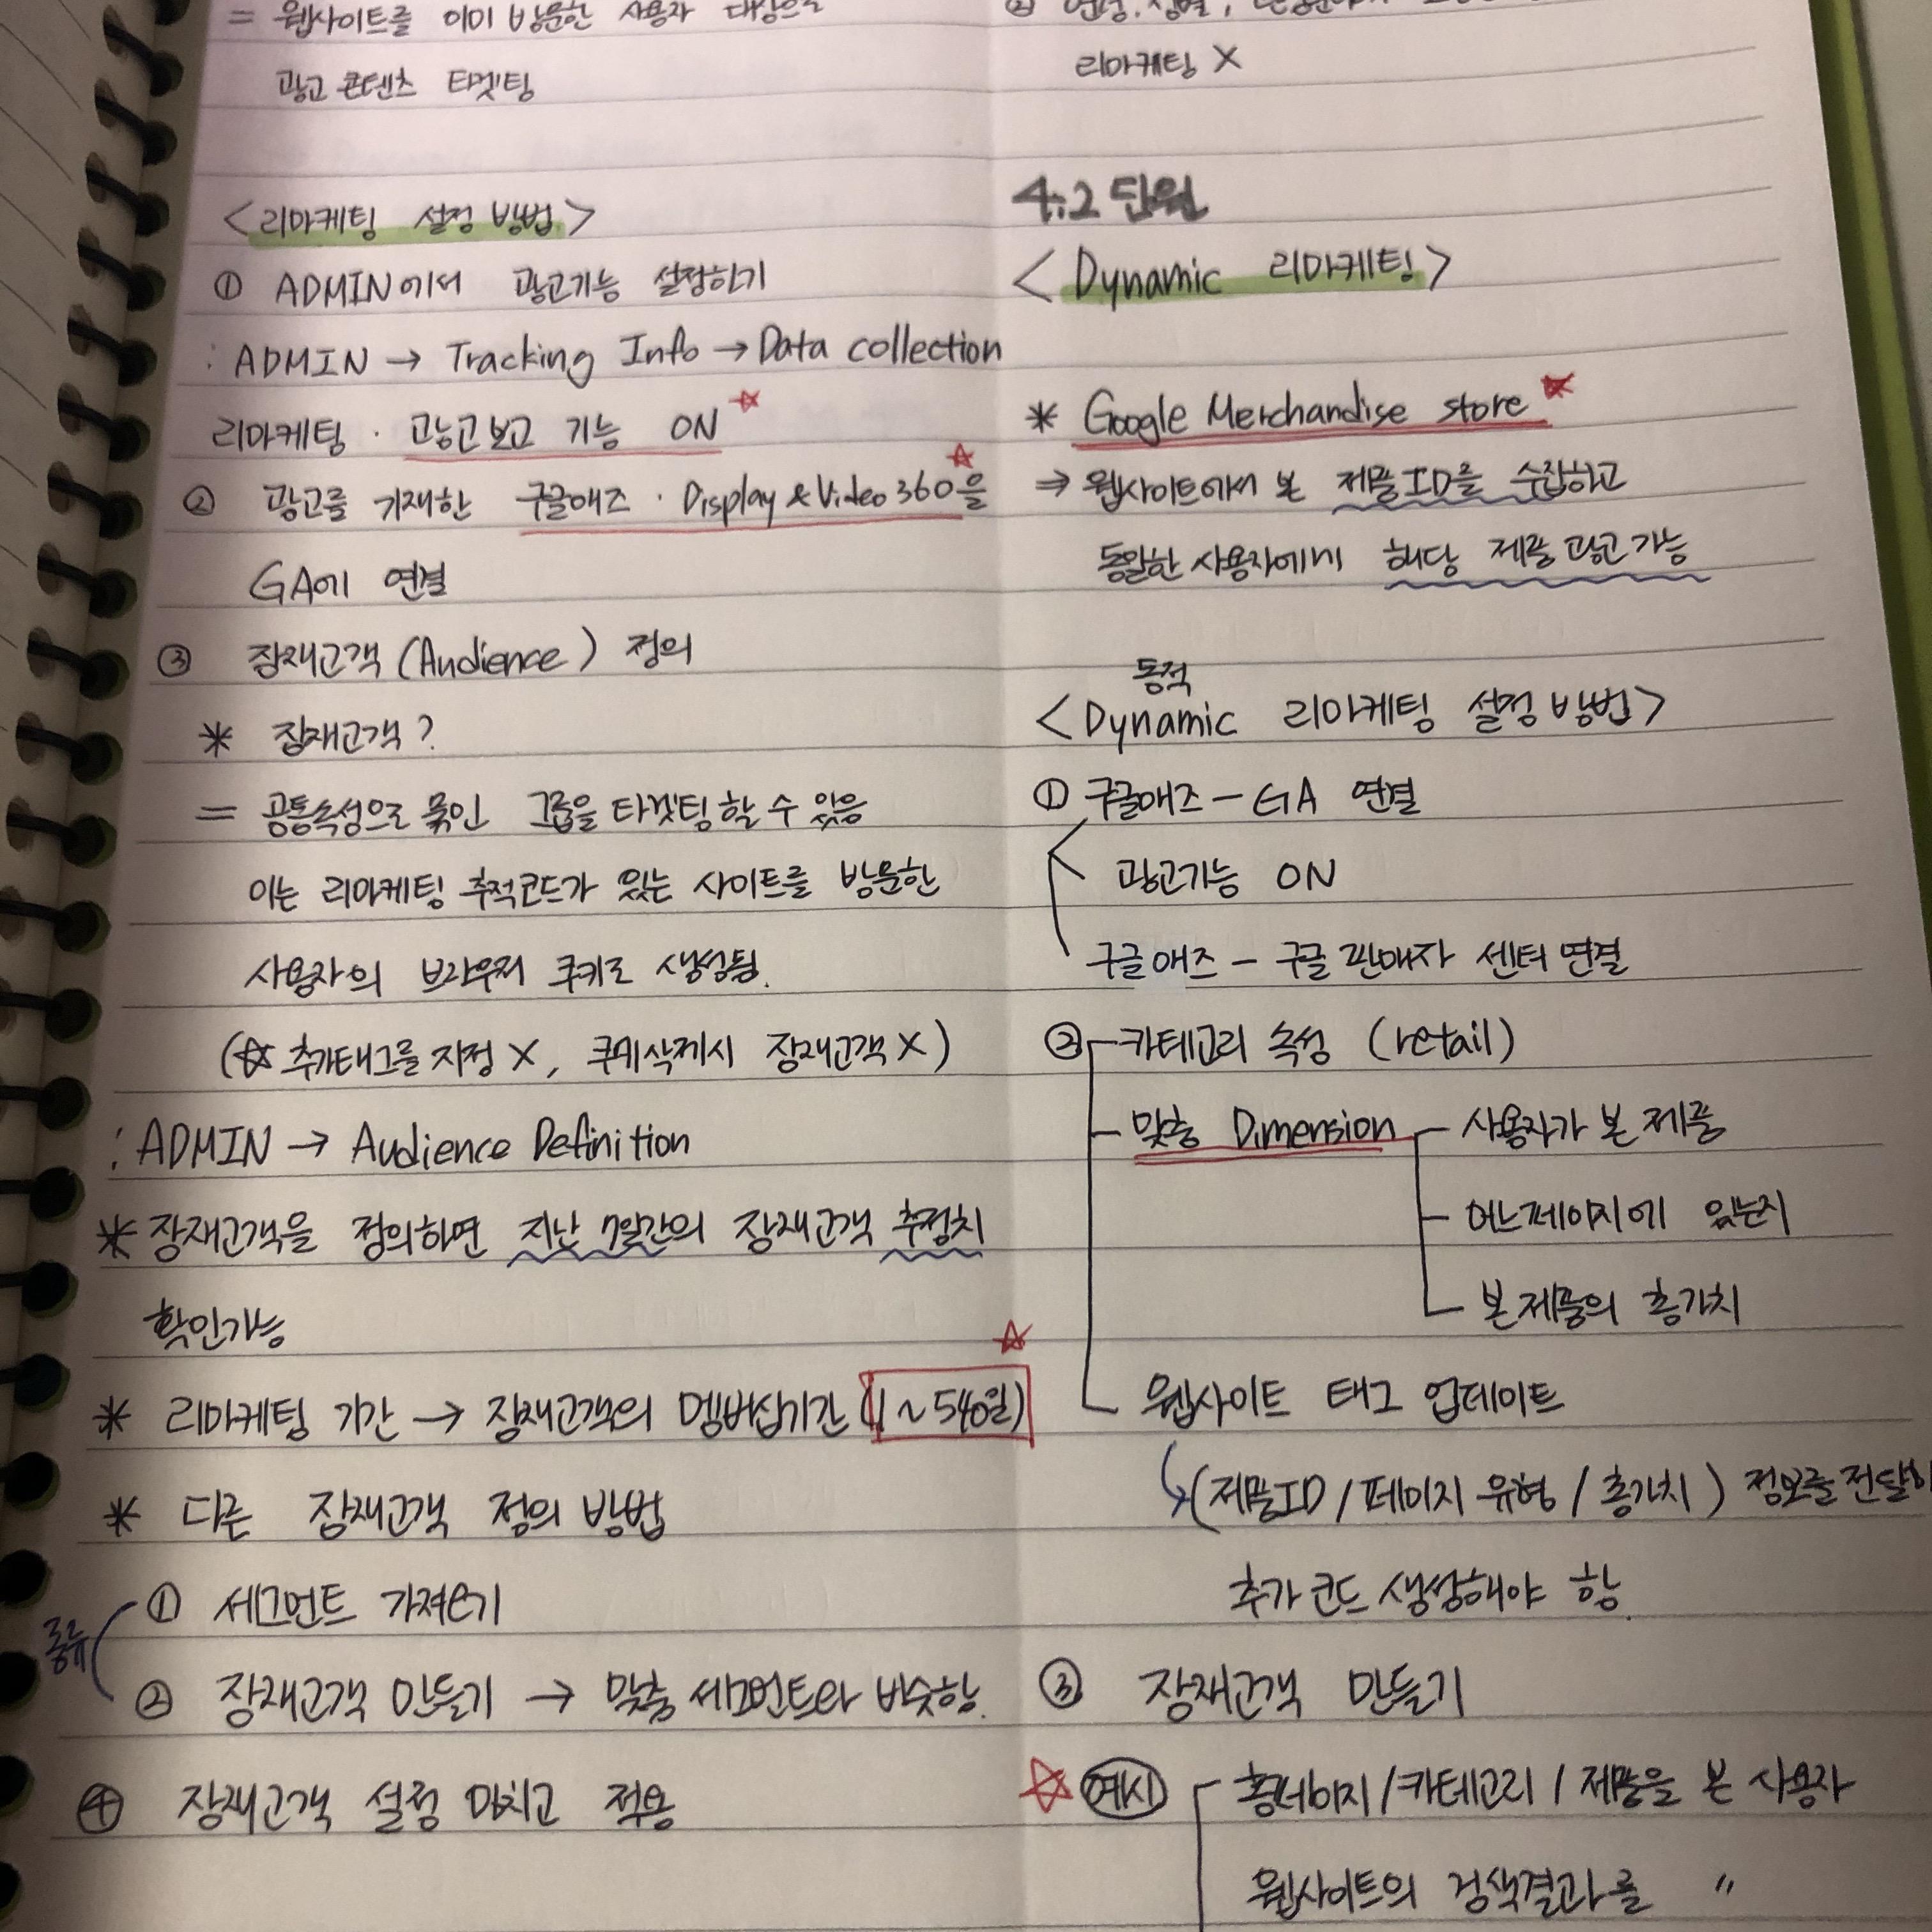 = 웹사이트를 이미 방문한 사용자 대상으로
광고 콘텐츠 타겟팅
<리마케팅 설정 방법>
① ADMIN에서 광고기능 설정하기
: ADMIN → Tracking Info → Data collection
리마케팅 · 광고보고 기능 ON ☆
② 광고를 기재한 구글애즈 · Display & Video 360을 ☆
GA에 연결
③ 잠재고객 (Audience) 정의
* 잠재고객?
= 공통속성으로 묶인 그룹을 타겟팅할 수 있음
이는 리마케팅 추적코드가 있는 사이트를 방문한
사용자의 브라우저 쿠키로 생성됨.
(☆ 추가태그를 지정 X, 쿠키삭제시 잠재고객 X)
: ADMIN → Audience Definition
* 잠재고객을 정의하면 지난 7일간의 잠재고객 추정치
확인가능
* 리마케팅 기간 → 잠재고객의 멤버십기간 (1 ~ 540일) ☆
* 다른 잠재고객 정의 방법
종류
① 세그먼트 가져오기
② 잠재고객 만들기 → 맞춤 세그먼트와 비슷함.
④ 잠재고객 설정 마치고 적용
리마케팅 X
4.2 단원
<Dynamic 리마케팅>
* Google Merchandise store ★
⇒ 웹사이트에서 본 제품ID를 수집하고
동일한 사용자에게 해당 제품 광고 가능
동적
<Dynamic 리마케팅 설정 방법>
① 구글애즈 - GA 연결
광고기능 ON
구글애즈 - 구글 판매자 센터 연결
② 카테고리 속성 (retail)
맞춤 Dimension 사용자가 본 제품
어느페이지에 있는지
본 제품의 총가치
웹사이트 태그 업데이트
(제품ID / 페이지 유형 / 총가치) 정보를 전달하
추가 코드 생성해야 함.
③ 잠재고객 만들기
☆ 예시 홈페이지 / 카테고리 / 제품을 본 사용자
웹사이트의 검색결과를 〃